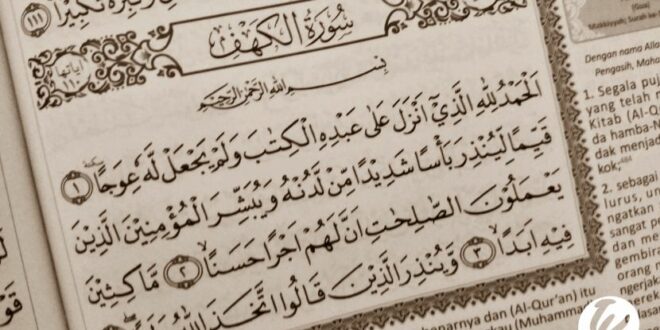 تَكْبِيْرًا ١١١
سُوْرَةُ الْكَهْفِ
اٰيَاتُهَا ١١٠
بِسْمِ اللّٰهِ الرَّحْمٰنِ الرَّحِيْمِ
اَلْحَمْدُ لِلّٰهِ الَّذِيْٓ اَنْزَلَ عَلٰى عَبْدِهِ الْكِتٰبَ وَلَمْ يَجْعَلْ لَّهٗ عِوَجًا ۜ ١
قَيِّمًا لِّيُنْذِرَ بَأْسًا شَدِيْدًا مِّنْ لَّدُنْهُ وَيُبَشِّرَ الْمُؤْمِنِيْنَ الَّذِيْنَ
يَعْمَلُوْنَ الصّٰلِحٰتِ اَنَّ لَهُمْ اَجْرًا حَسَنًاۙ ٢ مَّاكِثِيْنَ
فِيْهِ اَبَدًاۙ ٣ وَّيُنْذِرَ الَّذِيْنَ قَالُوا اتَّخَذَ اللّٰهُ
(Gua)
Makkiyyah; Surah ke-
Dengan nama Alla
Pengasih, Maha
1. Segala puj
yang telah m
Kitab (Al-Qur
da hamba-N
dak menjad
kok;484
2. sebagai
lurus, un
ngatkan
sangat p
dan me
gembira
orang m
ngerjak
benarnya dan (Al-Qur'an) itu
(Muhamma